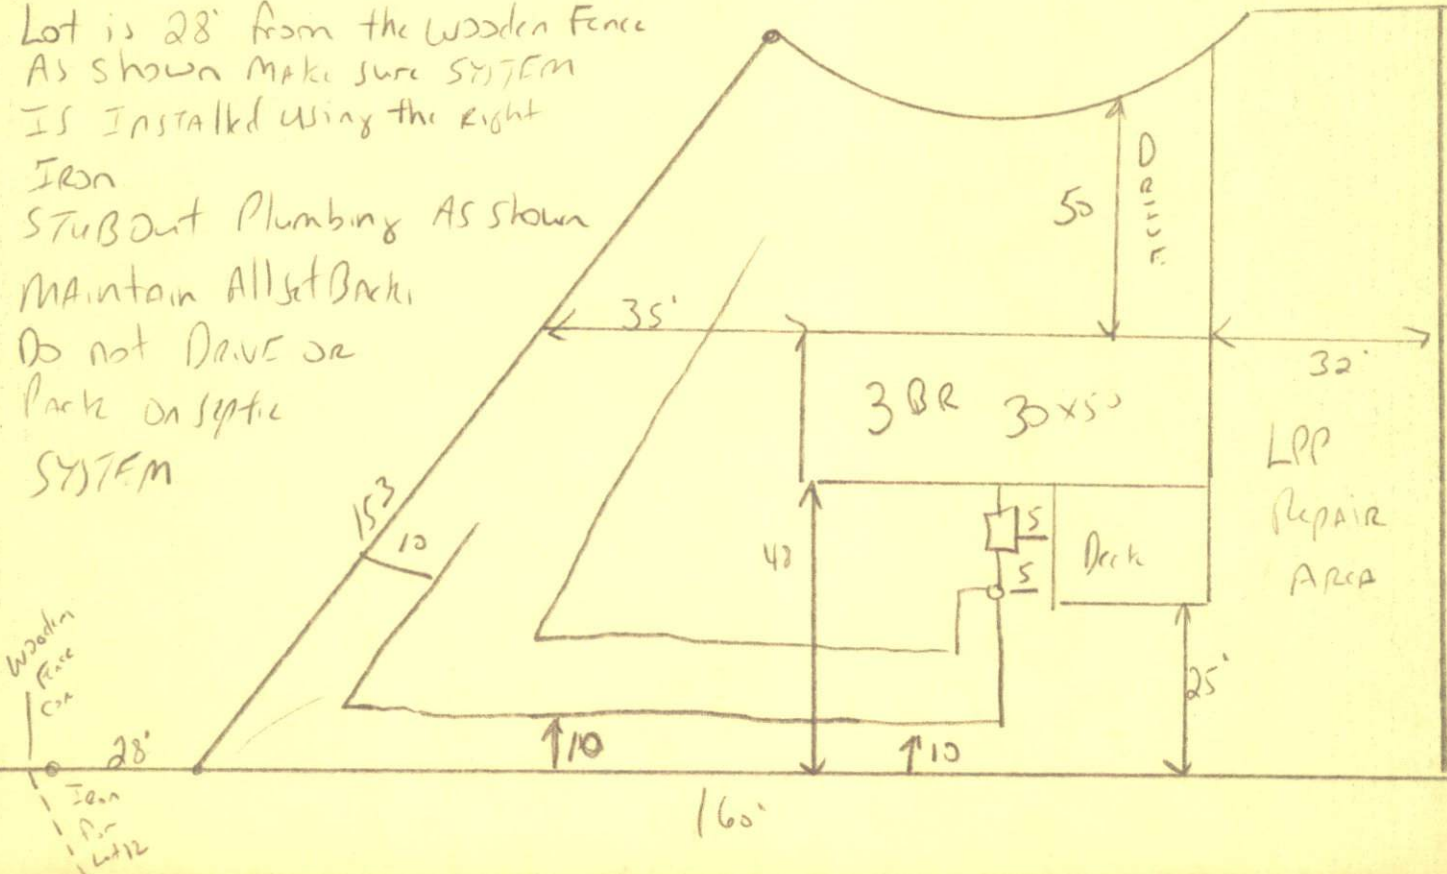 Lot is 28' from the wooden Fence
As shown Make sure SYSTEM
IS Installed using the Right
Iron
STUBOut Plumbing As shown
MAintain All SetBacks
Do not DRIVE OR
Park on septic
SYSTEM
DRIVE
50
35'
32'
3 BR 30x50
LPP
Repair
Area
153
10
40
5
5
Deck
25'
Wooden
Fence
Cor
28'
10
10
Iron
for
Lot 12
160'